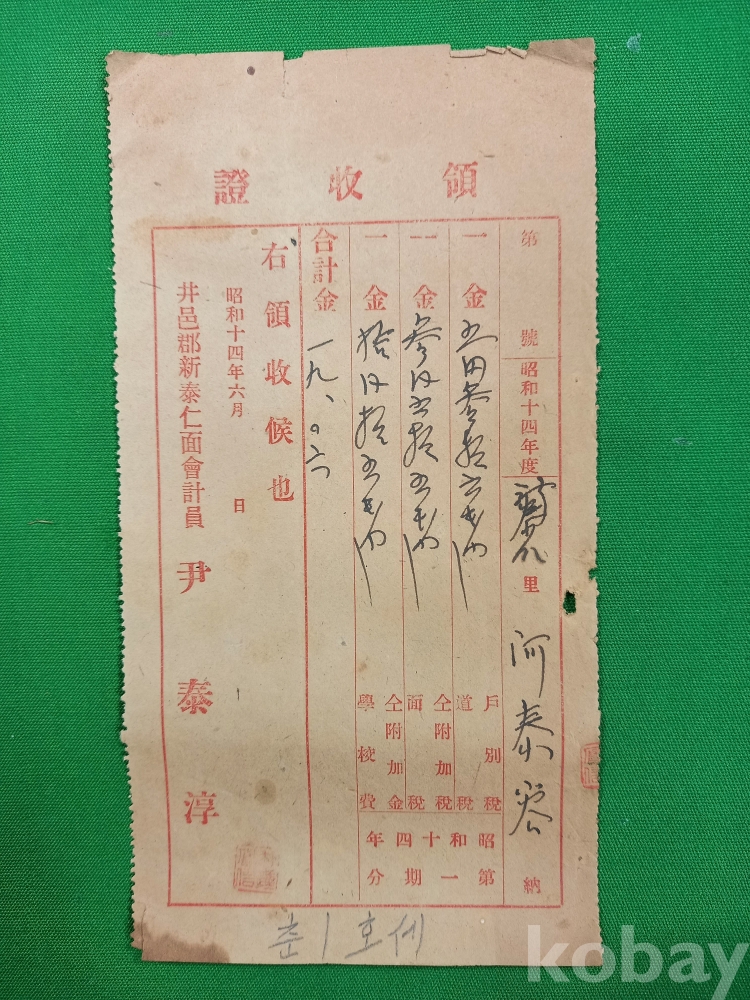 領收證
第 號 昭和十四年度 里 河泰 納
一金 五円參拾六戔也 戶別稅
道稅
一金 參円五拾五戔也 仝附加稅
面稅
一金 拾円拾五戔也 仝附加金
學校費
昭和十四年
第一期分
合計金 一九、〇六
右領收候也
昭和十四年六月 日
井邑郡新泰仁面會計員 尹泰淳
춘 1 호세
kobay